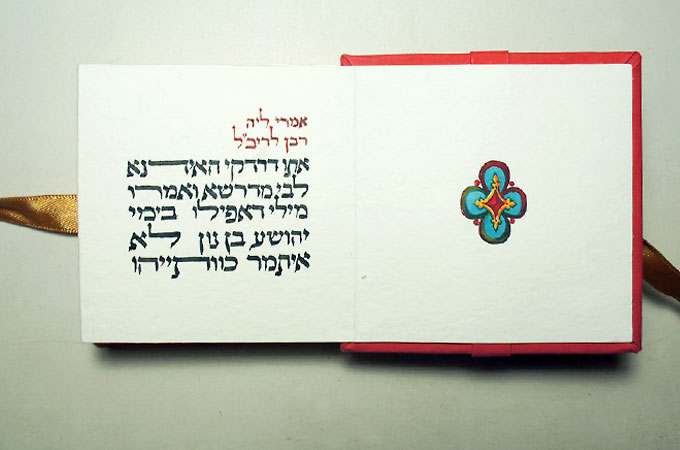 אמרי ליה
רבנן לריב״ל
אתו דרדקי האידנא
לבי מדרשא ואמרו
מילי דאפילו בימי
יהושע בן נון לא
איתמר כוותייהו